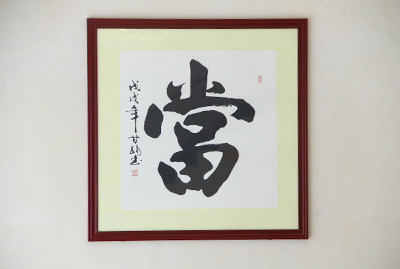 當
戊戌年